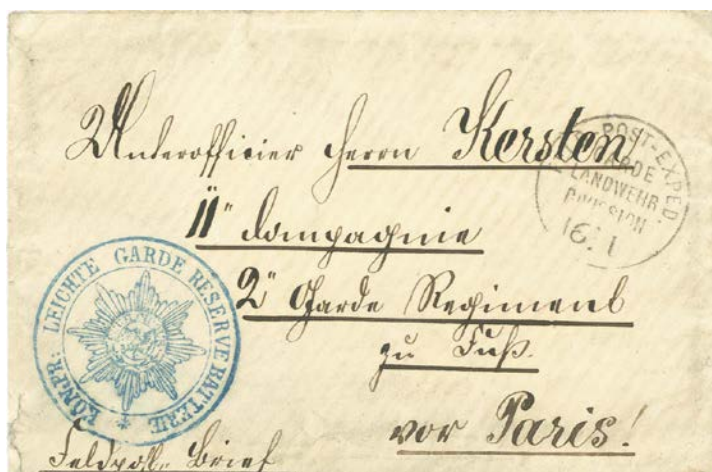 Unterofficier Herrn Kersten
11" Compagnie
2" Garde Regiments
zu Fuß.
vor Paris!
Feldpost-Brief
POST-EXPED.
GARDE
LANDWEHR.
DIVISION
16/1
KÖN. PR: LEICHTE GARDE RESERVE BATTERIE *